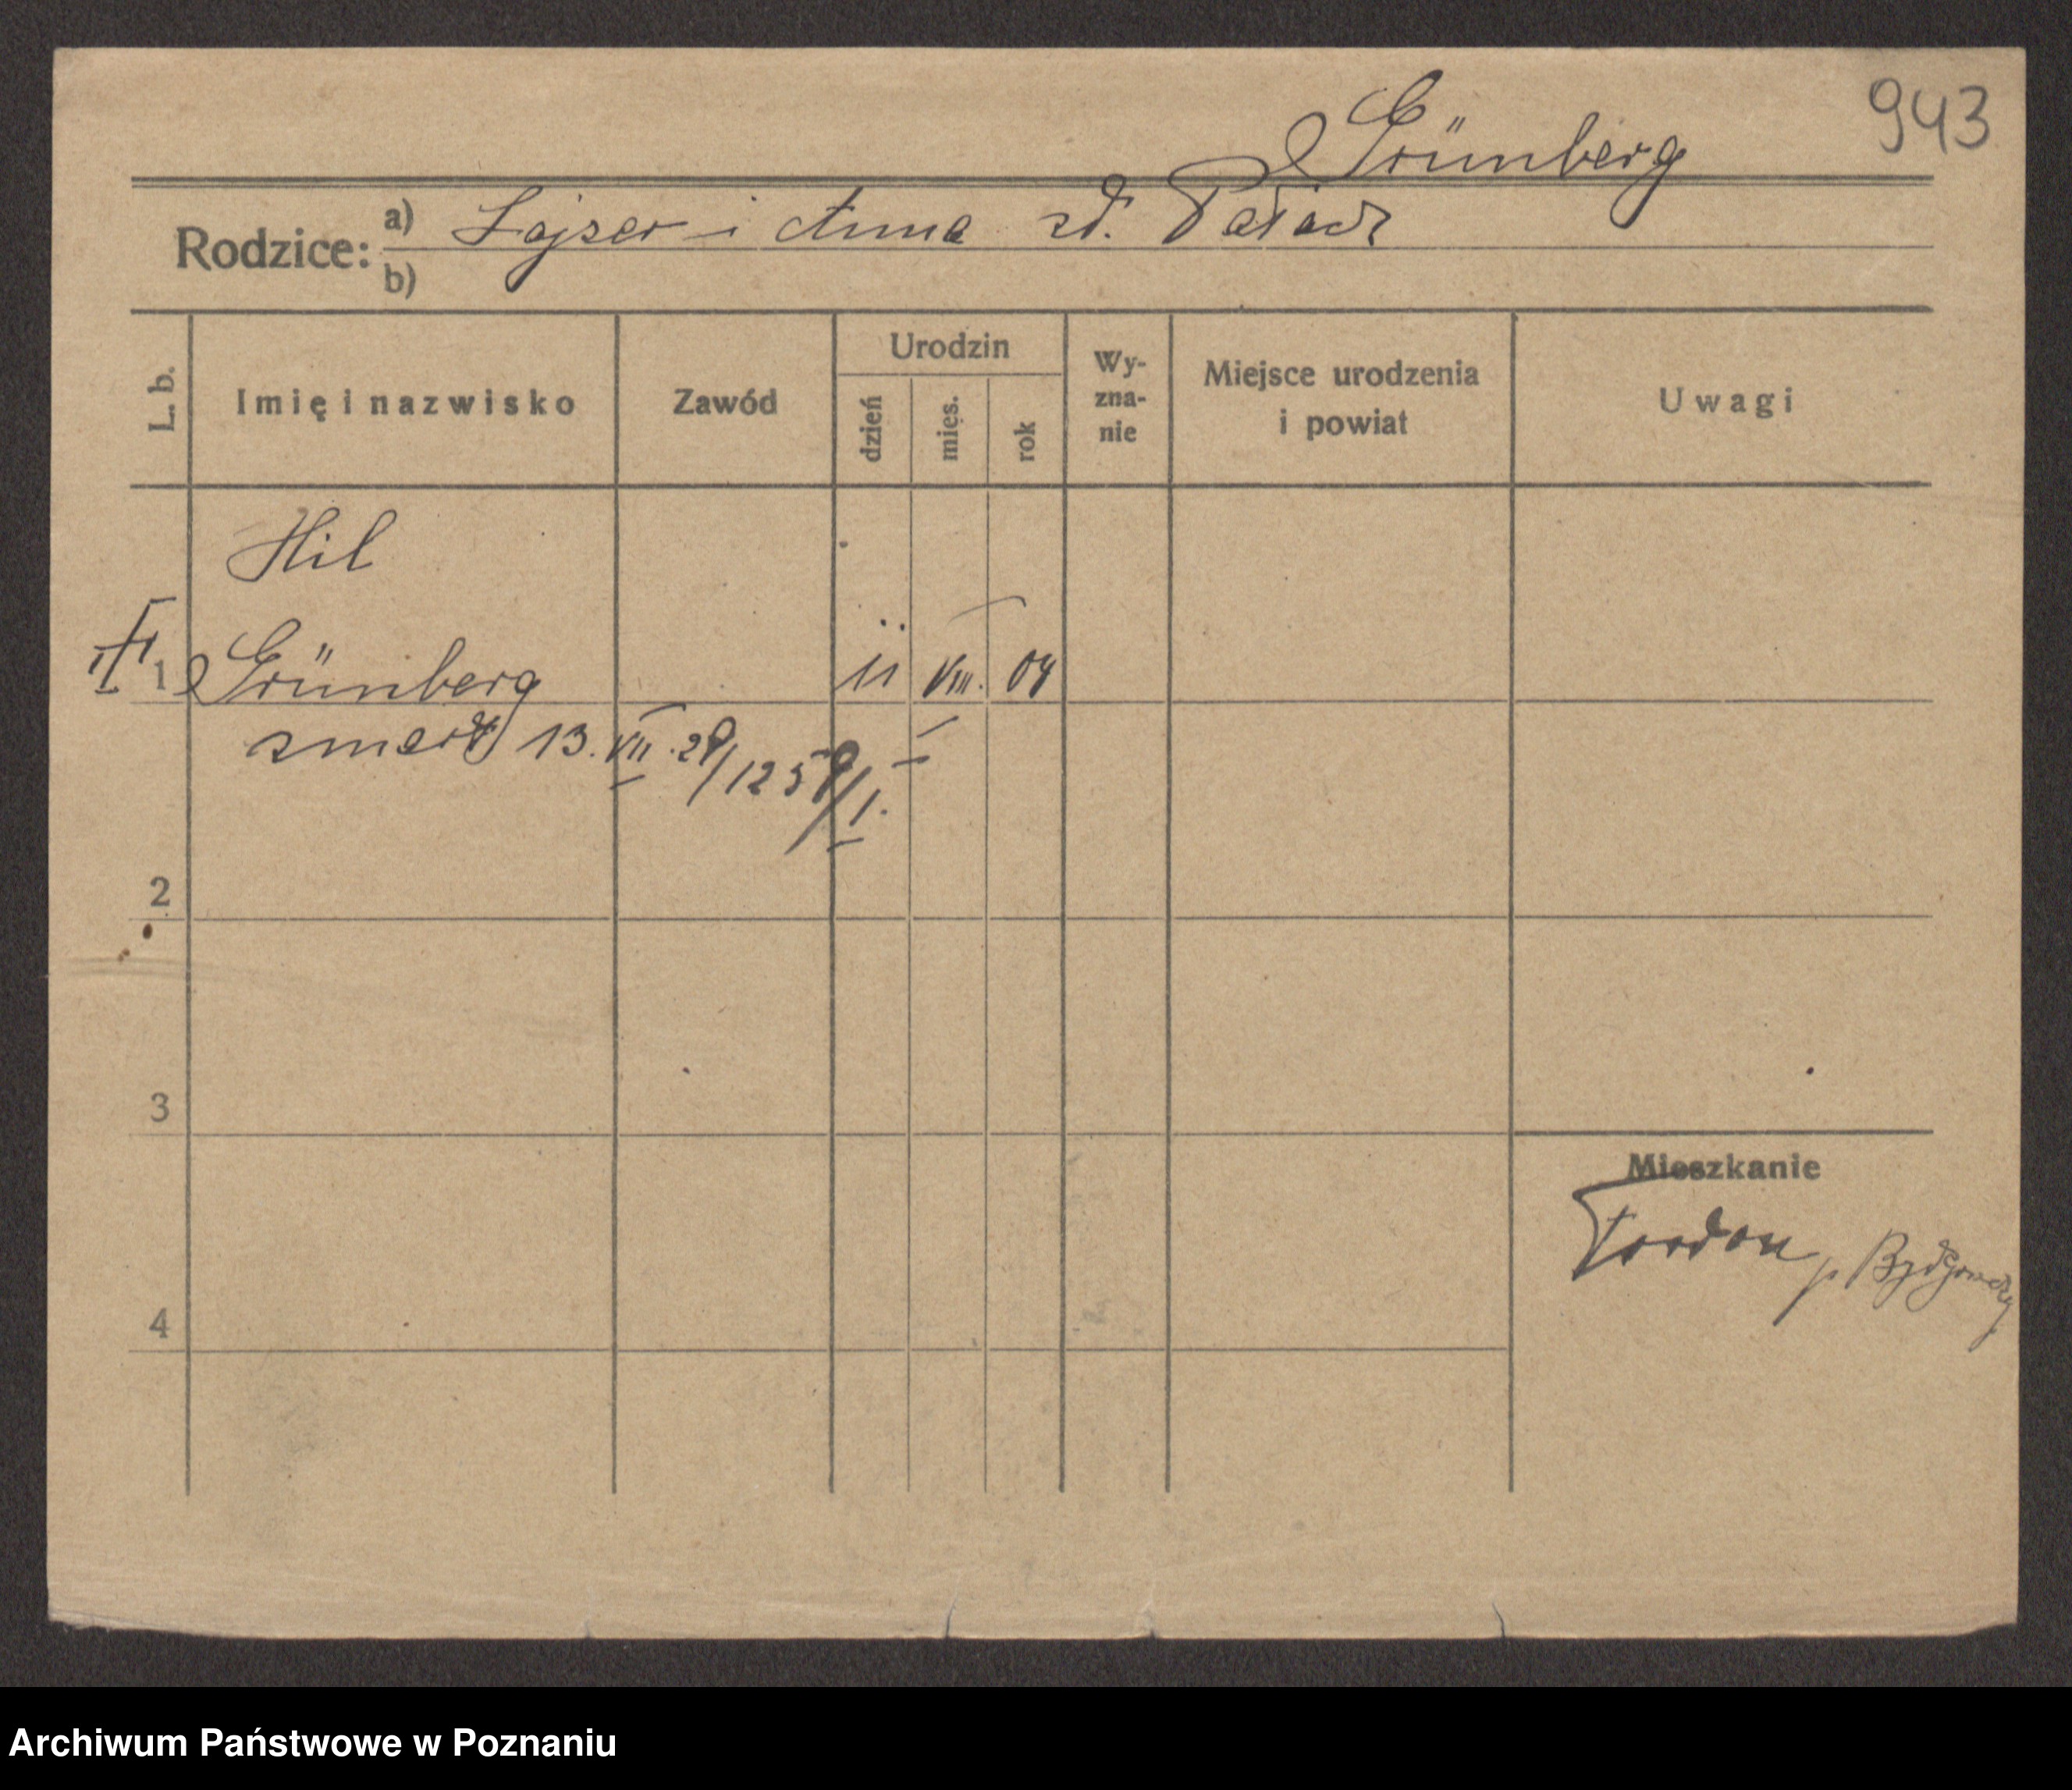 943
Grünberg
Rodzice: a) Lajser i Anna zd. Pałacz
b)
L. b.
Imię i nazwisko
Zawód
Urodzin
dzień
mies.
rok
Wy-
zna-
nie
Miejsce urodzenia
i powiat
Uwagi
Hil
1 Grünberg 11 VIII. 04
zmarł 13. VII. 29/1259/I.
2
3
Mieszkanie
Fordon p. Bydgoszczy
4
Archiwum Państwowe w Poznaniu